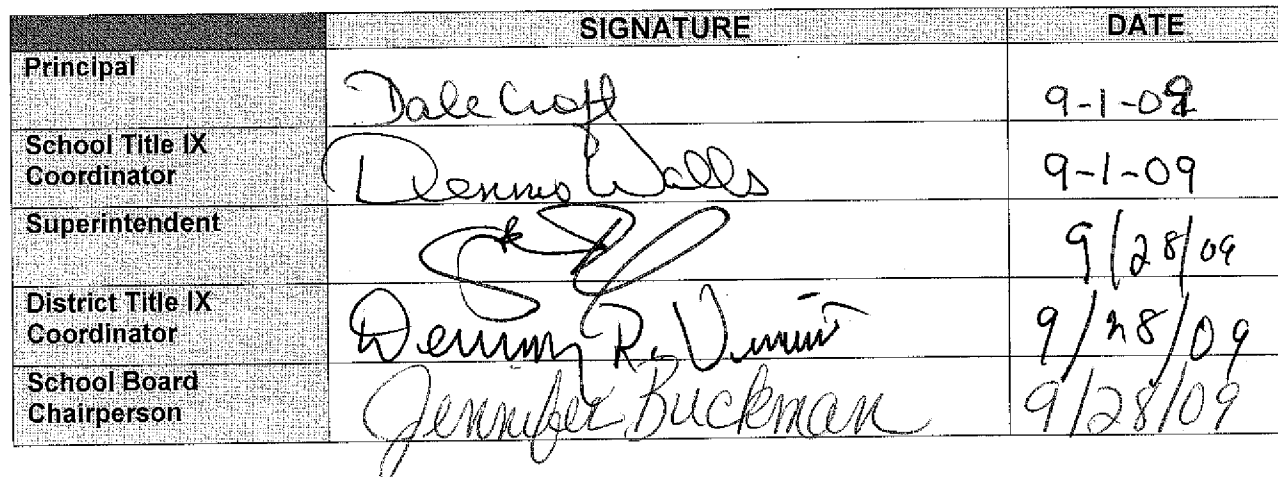 SIGNATURE DATE
Principal Dale Croft 9-1-09
School Title IX
Coordinator Dennis Walls 9-1-09
Superintendent 9/28/09
District Title IX
Coordinator R. 9/28/09
School Board
Chairperson Jennifer Buckman 9/28/09